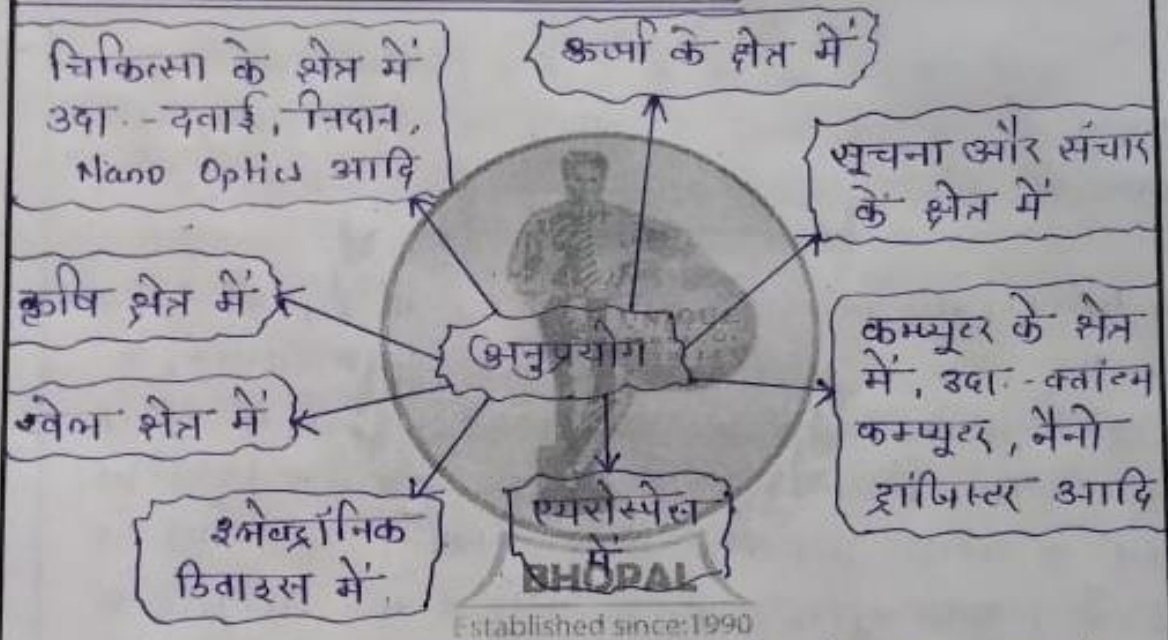 चिकित्सा के क्षेत्र में
उदा.-दवाई, निदान,
Nano Optics आदि
ऊर्जा के क्षेत्र में
सूचना और संचार
के क्षेत्र में
कृषि क्षेत्र में
अनुप्रयोग
कम्प्यूटर के क्षेत्र
में, उदा.-क्वांटम
कम्प्यूटर, नैनो
ट्रांजिस्टर आदि
खेल क्षेत्र में
इलेक्ट्रॉनिक
डिवाइस में
एयरोस्पेस
में
BHOPAL
Established since:1990